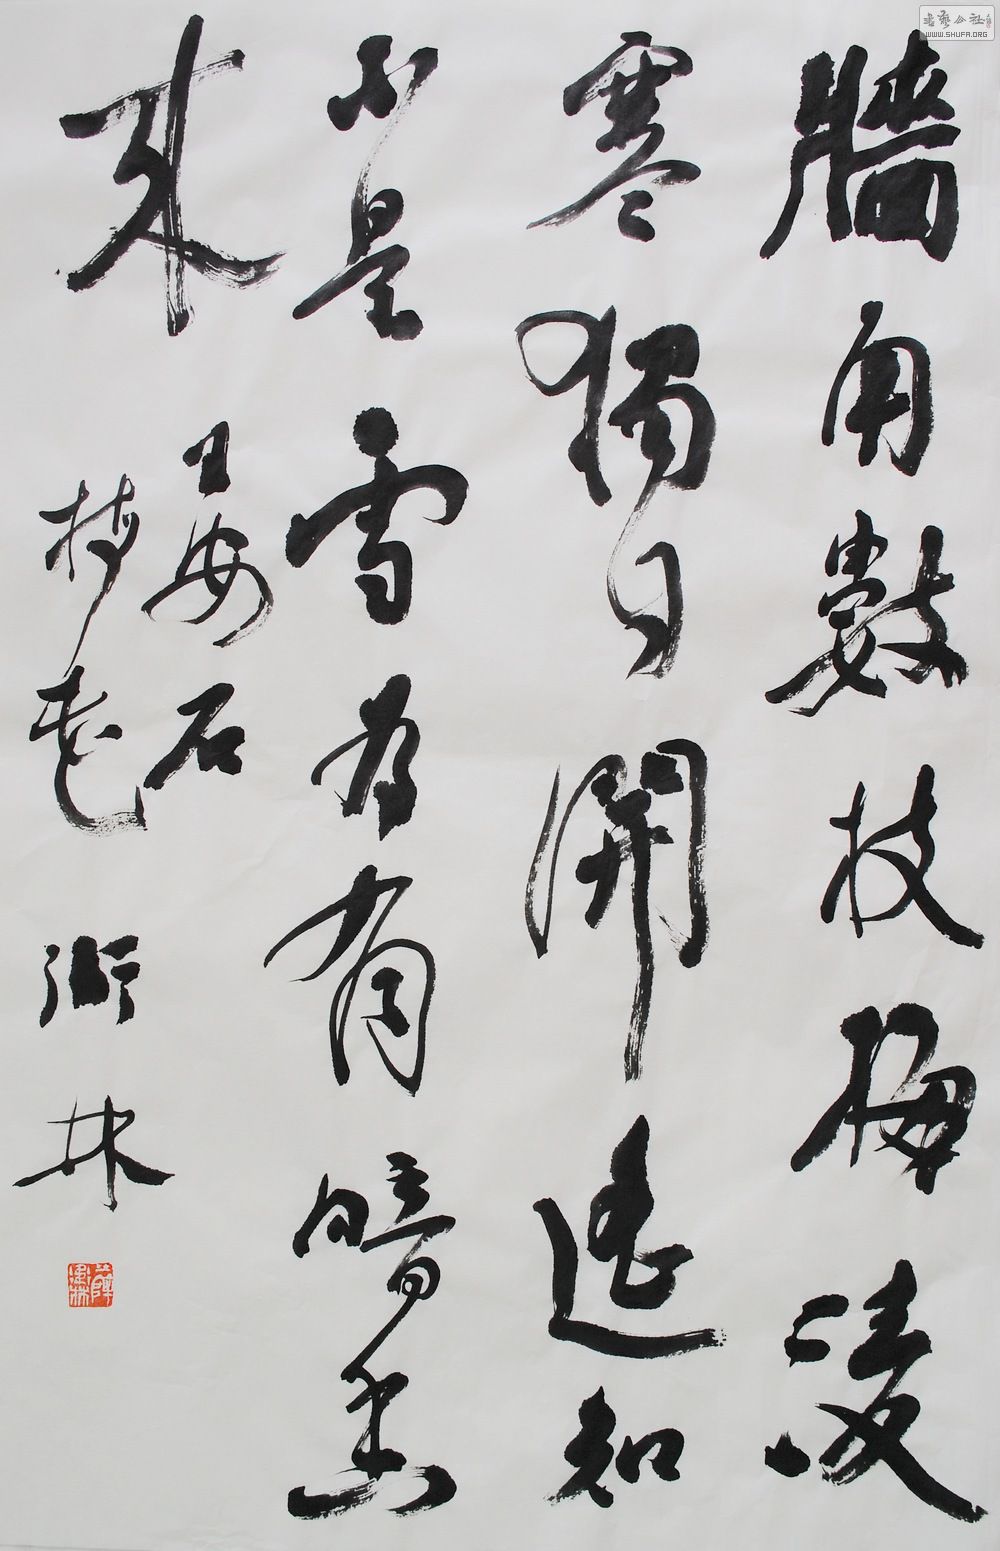 牆角數枝梅凌
寒獨自開遙知
不是雪為有暗香
來
王安石
梅花 衛林
薛衛林
書藝公社
WWW.SHUFA.ORG